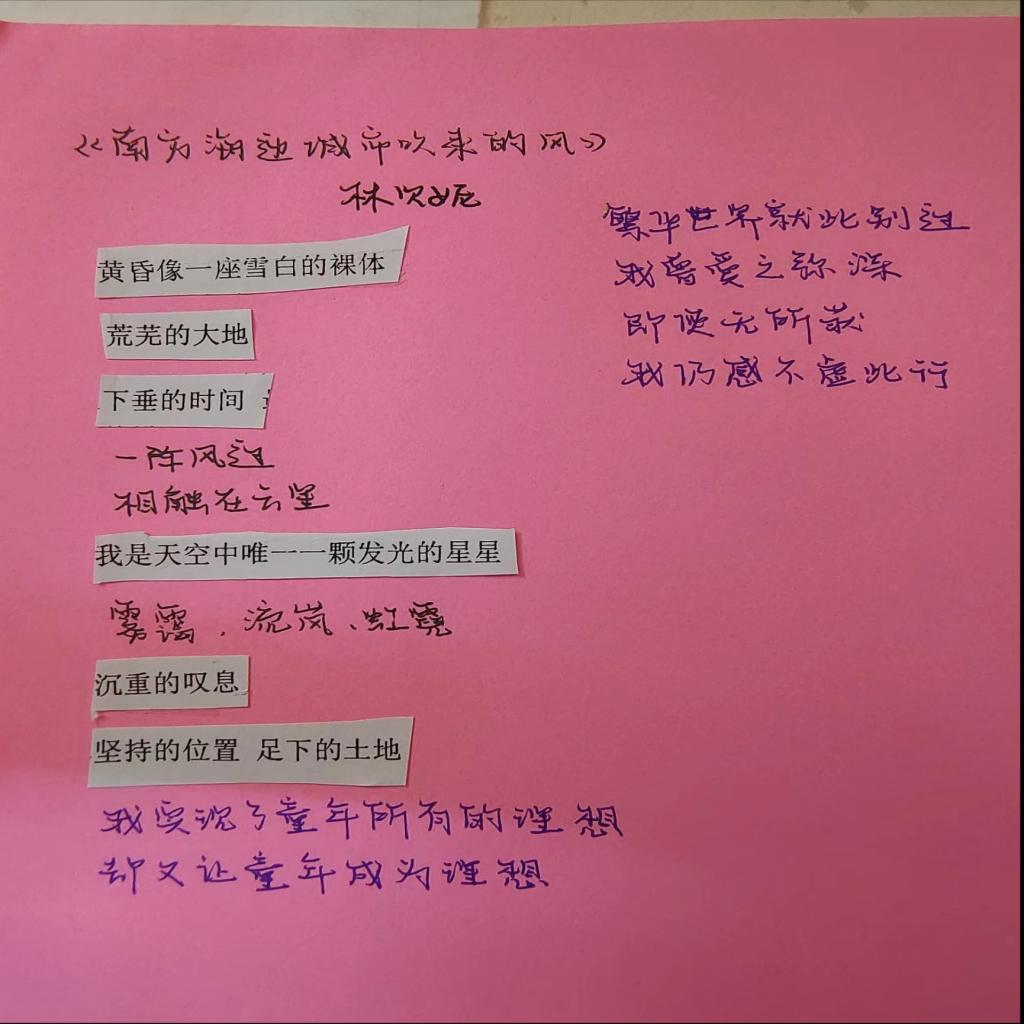 《南方海边城市吹来的风》
林次姬
黄昏像一座雪白的裸体
荒芜的大地
下垂的时间
一阵风过
相触在云里
我是天空中唯一一颗发光的星星
雾霭、流岚、虹霓
沉重的叹息
坚持的位置 足下的土地
我实现了童年所有的理想
却又让童年成为理想
繁华世界就此别过
我曾爱之弥深
即便无所获
我仍感不虚此行